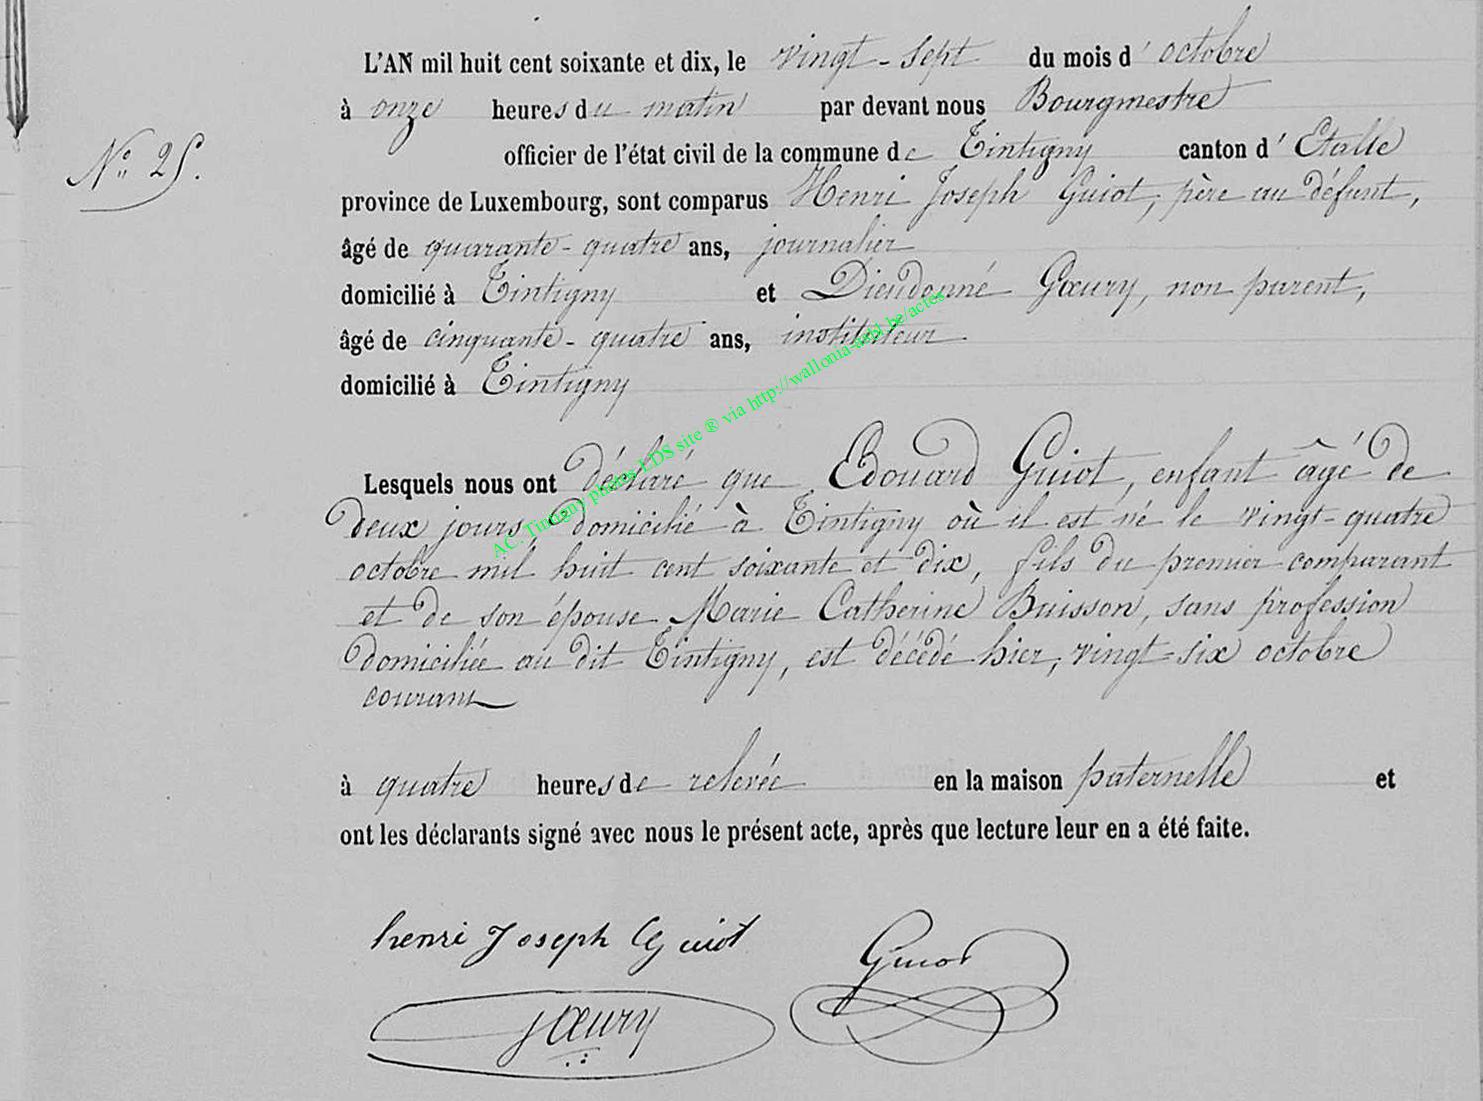 L'AN mil huit cent soixante et dix, le vingt-sept du mois d'octobre
à onze heures du matin par devant nous Bourgmestre
N° 25.
officier de l'état civil de la commune de Tintigny canton d'Etalle
province de Luxembourg, sont comparus Henri Joseph Guiot, père au défunt,
âgé de quarante-quatre ans, journalier
domicilié à Tintigny et Dieudonné Gœury, non parent,
âgé de cinquante-quatre ans, instituteur
domicilié à Tintigny
AC. Tintigny photos LDS site ® via http://wallonia-asbl.be/actes
Lesquels nous ont déclaré que Edouard Guiot, enfant âgé de
deux jours, domicilié à Tintigny où il est né le vingt-quatre
octobre mil huit cent soixante et dix, fils du premier comparant
et de son épouse Marie Catherine Buisson, sans profession
domiciliée au dit Tintigny, est décédé hier, vingt-six octobre
courant
à quatre heures de relevée en la maison paternelle et
ont les déclarants signé avec nous le présent acte, après que lecture leur en a été faite.
henri Joseph Guiot
Gœury